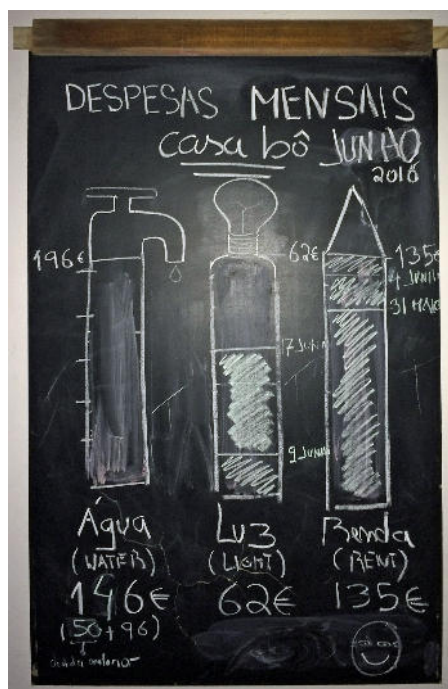 DESPESAS MENSAIS
casa bô JUNHO
2018
196€
62€
135€
4 JUNHO
31 MAIO
17 JUNHO
9 JUNHO
Água
(WATER)
146€
(50+96)
Luz
(LIGHT)
62€
Renda
(RENT)
135€